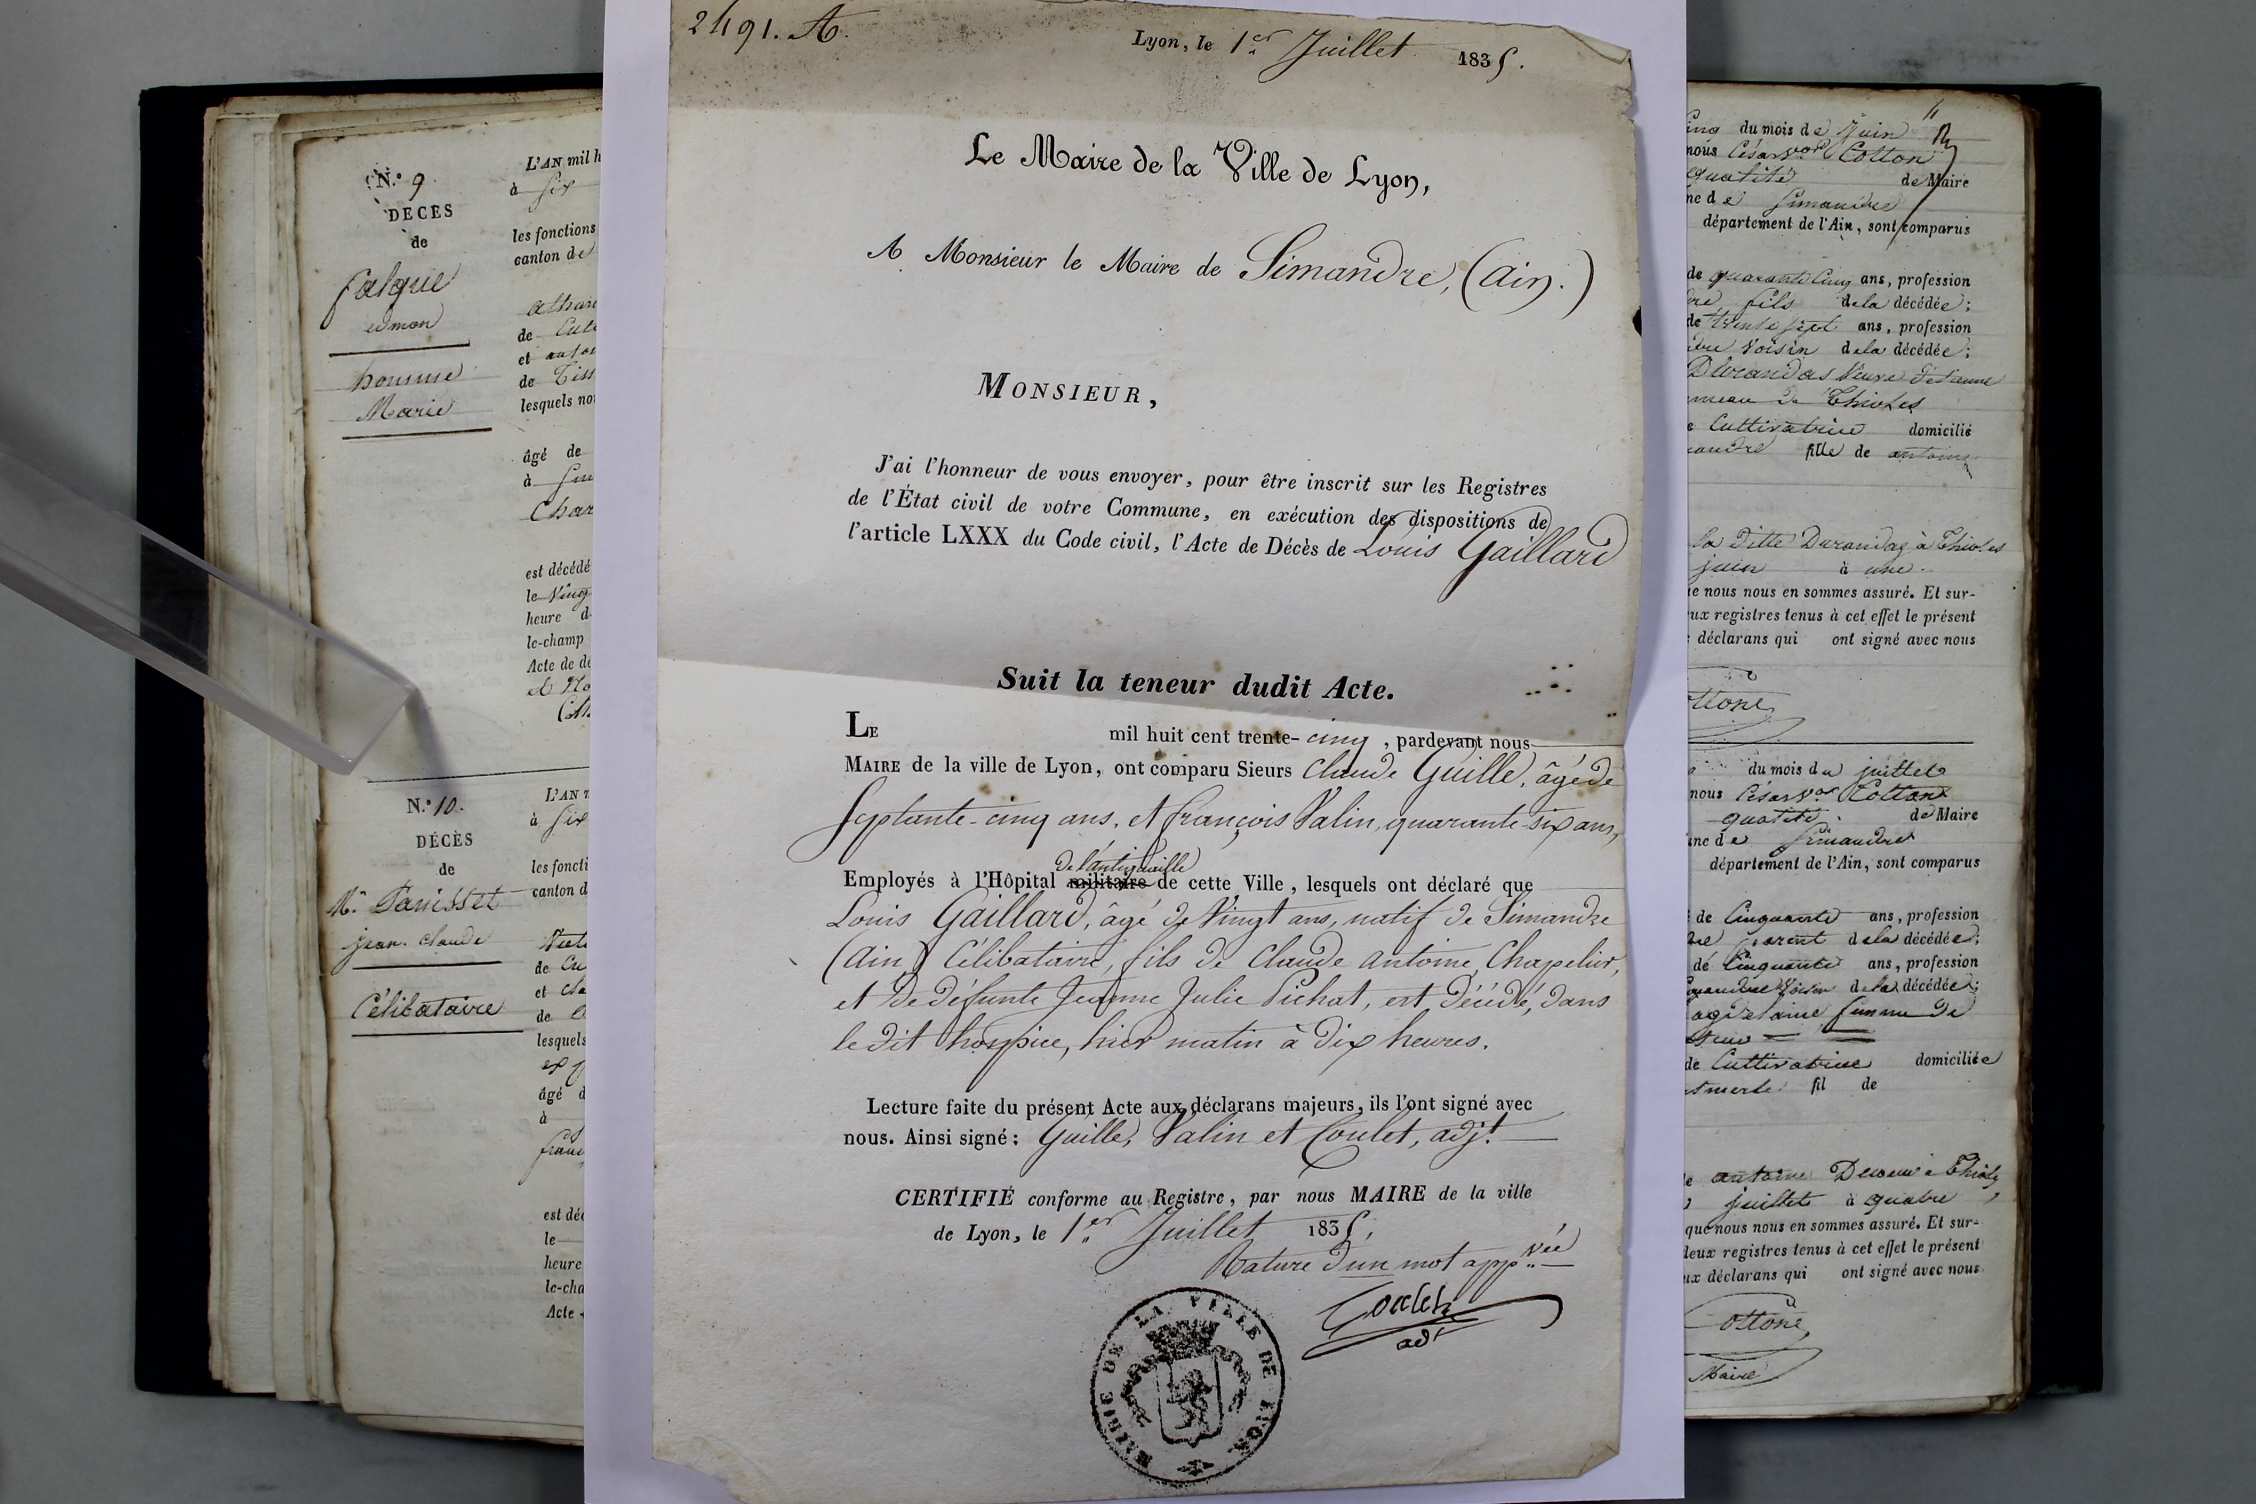 2491. A.
Lyon, le 1er Juillet 1835.
Le Maire de la Ville de Lyon,
A Monsieur le Maire de Simandre, (Ain.)
MONSIEUR,
J'ai l'honneur de vous envoyer, pour être inscrit sur les Registres
de l'État civil de votre Commune, en exécution des dispositions de
l'article LXXX du Code civil, l'Acte de Décès de Louis Gaillard
Suit la teneur dudit Acte.
LE mil huit cent trente-cinq, pardevant nous
MAIRE de la ville de Lyon, ont comparu Sieurs Claude Guille, âgé de
septante-cinq ans, et françois Valin, quarante-six ans,
de l'antiquaille
Employés à l'Hôpital militaire de cette Ville, lesquels ont déclaré que
Louis Gaillard, âgé de Vingt ans, natif de Simandre
(Ain) Célibataire, fils de Claude antoine, Chapelier,
et de défunte Jeanne Julie Pichat, est décédé, dans
le dit hospice, hier matin à dix heures.
Lecture faite du présent Acte aux déclarans majeurs, ils l'ont signé avec
nous. Ainsi signé: Guille, Valin et Coulet, adjt
CERTIFIÉ conforme au Registre, par nous MAIRE de la ville
de Lyon, le 1er Juillet 1835,
Rature d'un mot appvée
Coulet
adt
MAIRIE DE LA VILLE DE LYON
N.° 9
DÉCÈS
de
falque
homme
Marié
L'AN mil h
à six
les fonctions
canton de
de
et
de Tiss
lesquels no
âgé de
à
Char
est décédé
le Ving
heure d
le-champ
Acte de dé
N.° 10.
DÉCÈS
de
Mr Panisset
jean claude
Célibataire
L'AN
à six
les foncti
canton d
de
et
de
lesquels
âgé d
à
est déc
le
heure
le-cha
Acte
du mois de Juin
nous César Vor Cotton
qualité de Maire
ne de Simandre
département de l'Ain, sont comparus
de quarante cinq ans, profession
fils de la décédée;
de trente sept ans, profession
Voisin de la décédée;
Durandas Veuve d'Etienne
meau de Thioles
Cultivatrice domicilié
andre fille de antoine
la ditte Durandas à Thioles
juin à une
e nous nous en sommes assuré. Et sur-
ux registres tenus à cet effet le présent
déclarans qui ont signé avec nous
ottone
du mois du juillet
nous César Vor Cotton
qualité de Maire
ne de Simandre
département de l'Ain, sont comparus
de Cinquante ans, profession
parent de la décédée;
de Cinquante ans, profession
Voisin de la décédée;
femme de
de Cultivatrice domiciliée
fil de
antoine
juillet à quatre
que nous nous en sommes assuré. Et sur-
deux registres tenus à cet effet le présent
ux déclarans qui ont signé avec nous
ottone,
Maire